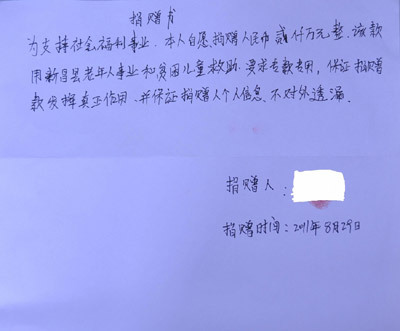 捐赠书
为支持社会福利事业、本人自愿捐赠人民币贰仟万元整。该款
用新昌县老年人事业和贫困儿童救助。要求专款专用，保证捐赠
款发挥真正作用、并保证捐赠人个人信息、不对外透漏.
捐赠人：
捐赠时间：2011年8月29日